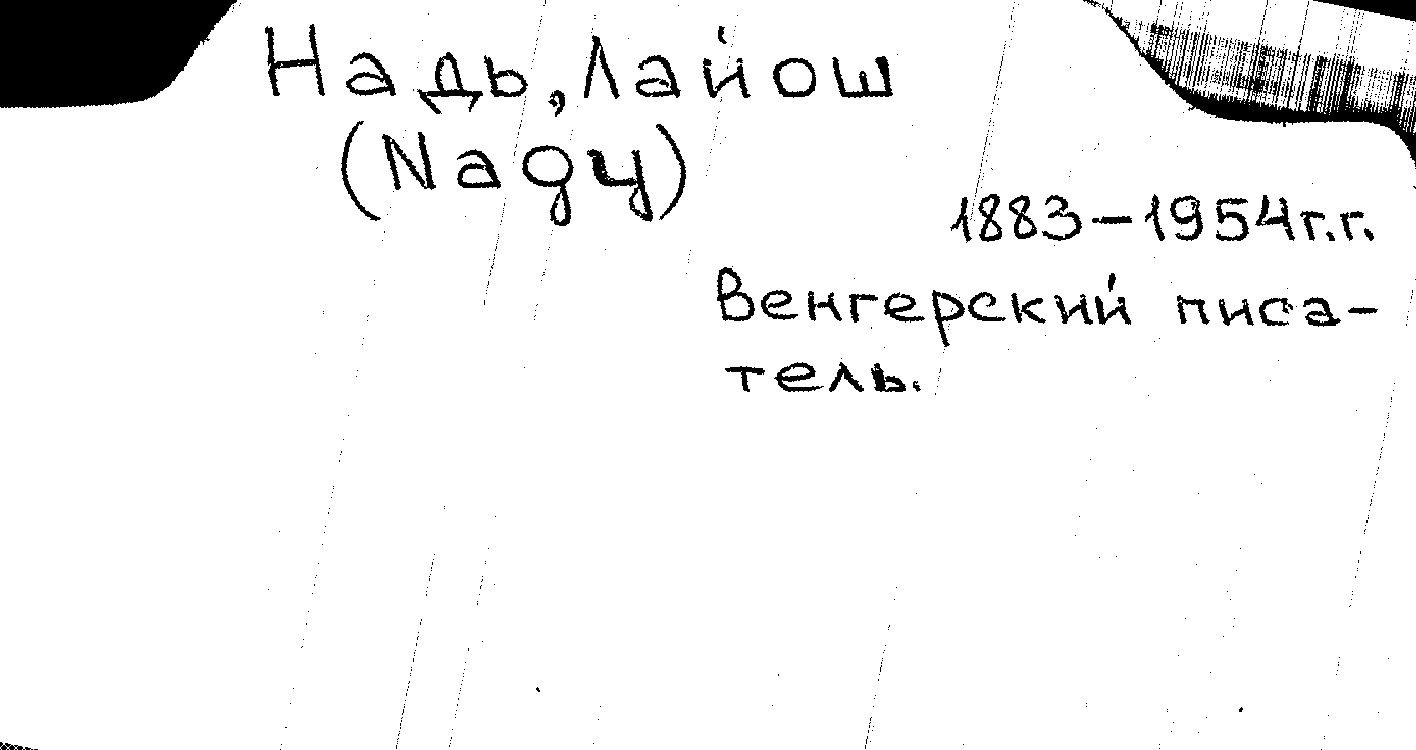 Надь, Лайош
(Nagy)
1883-1954г.г.
Венгерский писа-
тель.